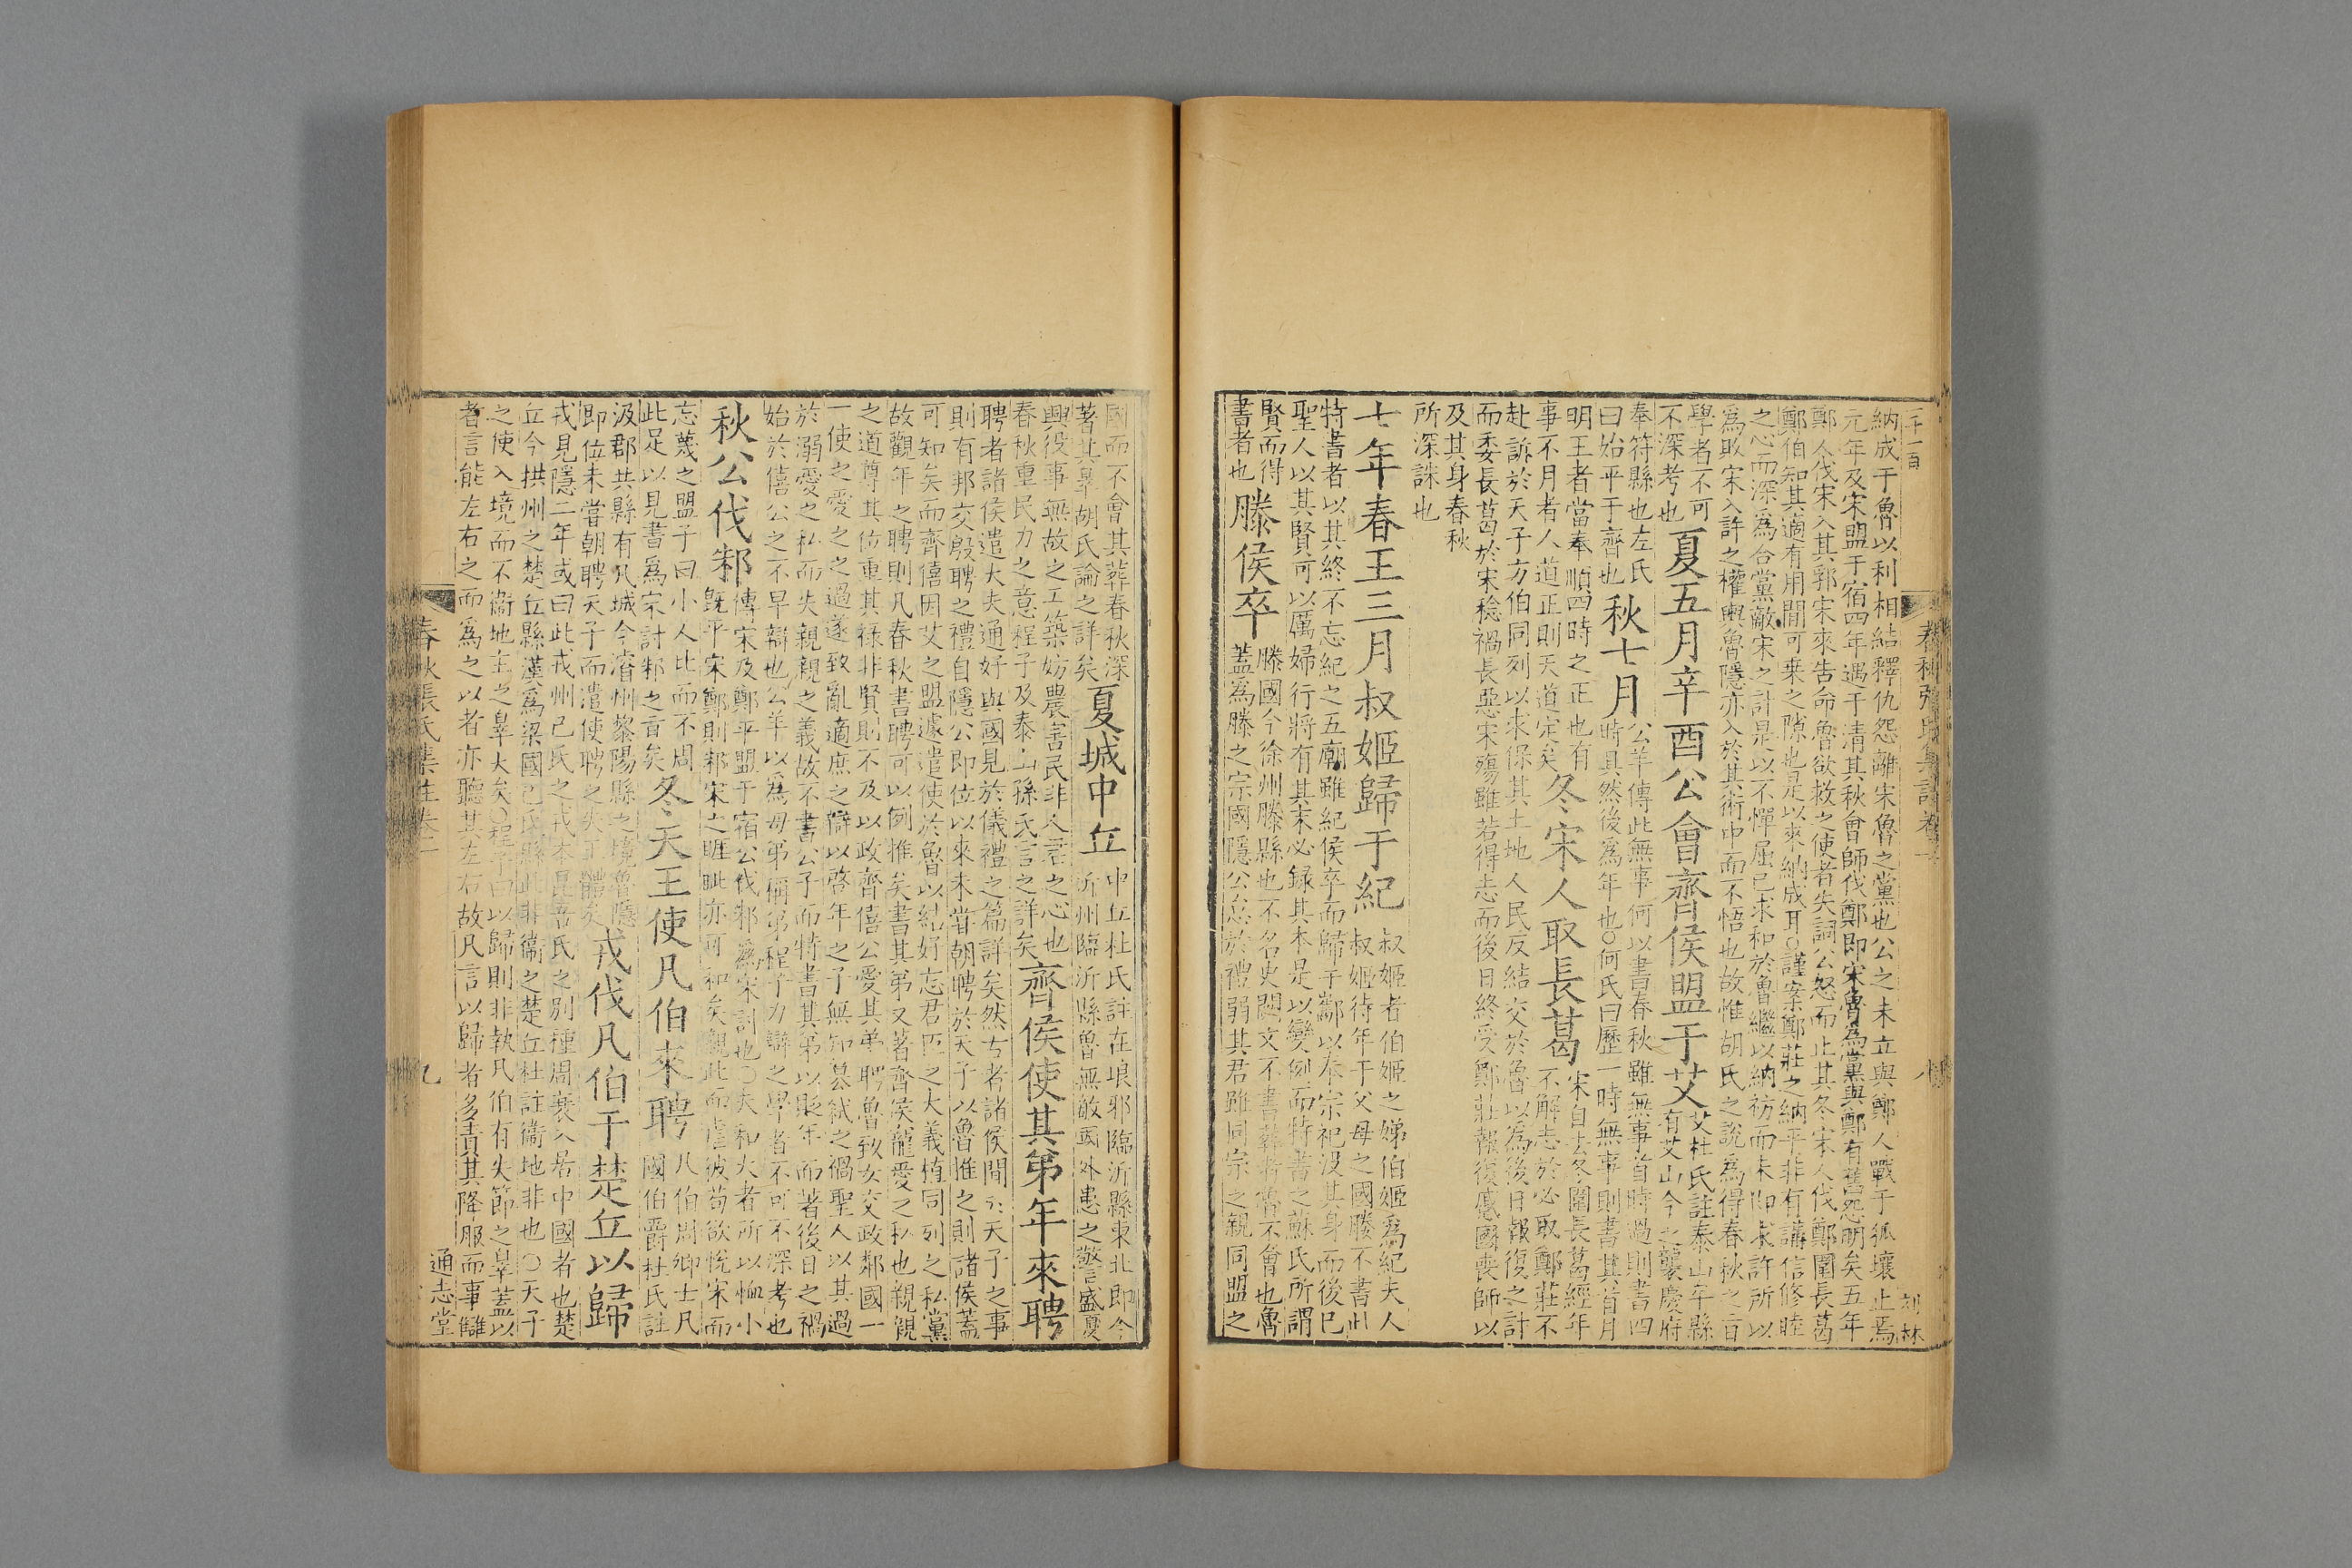 千一百
春秋張氏集註卷一
八
刘林
納成于魯以利相結釋仇怨離宋魯之黨也公之未立與鄭人戰于狐壤止焉
元年及宋盟于宿四年遇于清其秋會師伐鄭即宋魯爲黨與鄭有舊怨明矣五年
鄭人伐宋入其郛宋來告命魯欲救之使者失詞公怒而止其冬宋人伐鄭圍長葛
鄭伯知其適有用間可乗之隙也是以來納成耳○謹案鄭莊之納平非有講信修睦
之心而深爲合黨敵宋之計是以不憚屈已求和於魯繼以納祊而未即求許所以
爲敗宋入許之權輿魯隱亦入於其術中而不悟也故惟胡氏之說爲得春秋之旨
學者不可
不深考也
夏五月辛酉公會齊侯盟于艾
艾杜氏註泰山牟縣
有艾山今之襲慶府
奉符縣也左氏
曰始平于齊也
秋七月
公羊傳此無事何以書春秋雖無事首時過則書四
時具然後爲年也○何氏曰歷一時無事則書其首月
明王者當奉順四時之正也有
事不月者人道正則天道定矣
冬宋人取長葛
宋自去冬圍長葛經年
不解志於必取鄭莊不
赴訴於天子方伯同列以求保其土地人民反結交於魯以爲後日報復之計
而委長葛於宋稔禍長惡宋殤雖若得志而後日終受鄭莊報復慼國喪師以
及其身春秋
所深誅也
七年春王三月叔姬歸于紀
叔姬者伯姬之娣伯姬爲紀夫人
叔姬待年于父母之國媵不書此
特書者以其終不忘紀之五廟雖紀侯卒而歸于酅以奉宗祀没其身而後已
聖人以其賢可以厲婦行將有其末必録其本是以變例而特書之蘇氏所謂
賢而得
書者也
滕侯卒
滕國今徐州滕縣也不名史闕文不書葬者魯不會也魯
蓋爲滕之宗國隱公怠於禮弱其君雖同宗之親同盟之
國而不會其葬春秋深
著其辠胡氏論之詳矣
夏城中丘
中丘杜氏註在琅邪臨沂縣東北即今
沂州臨沂縣魯無敵國外患之警盛夏
興役事無故之工築妨農害民非人君之心也
春秋重民力之意程子及泰山孫氏言之詳矣
齊侯使其弟年來聘
聘者諸侯遣大夫通好與國見於儀禮之篇詳矣然古者諸侯間於天子之事
則有邦交殷聘之禮自隱公即位以來未嘗朝聘於天子以魯惟之則諸侯蓋
可知矣而齊僖因艾之盟遽遣使於魯以結好忘君臣之大義植同列之私黨
故觀年之聘則凡春秋書聘可以例推矣書其弟又著齊侯寵愛之私也親親
之道尊其位重其禄非賢則不及以政齊僖公愛其弟聘魯致女交政鄰國一
一使之愛之之過遂致亂適庶之辯以啓年之子無知簒弑之禍聖人以其過
於溺愛之私而失親親之義故不書公子而特書其弟以貶年而著後日之禍
始於僖公之不早辯也公羊以爲母弟稱弟程子力辯之學者不可不深考也
秋公伐邾
傳宋及鄭平盟于宿公伐邾爲宋討也○夫和大者所以恤小
旣平宋鄭則邾宋之睚眦亦可和矣觀此而虐彼苟欲悅宋而
忘蔑之盟子曰小人比而不周
此足以見書爲宋討邾之旨矣
冬天王使凡伯來聘
凡伯周卿士凡
國伯爵杜氏註
汲郡共縣有凡城今濬州黎陽縣之境魯隱
即位未嘗朝聘天子而遣使聘之失王體矣
戎伐凡伯于楚丘以歸
戎見隱二年或曰此戎州已氏之戎本昆吾氏之别種周衰入居中國者也楚
丘今拱州之楚丘縣漢爲梁國已氏縣此非衞之楚丘杜註衞地非也○天子
之使入境而不衞地主之辠大矣○程子曰以歸則非執凡伯有失節之辠蓋以
者言能左右之而爲之以者亦聽其左右故凡言以歸者多責其降服而事讎
春秋張氏集註卷一
九
通志堂